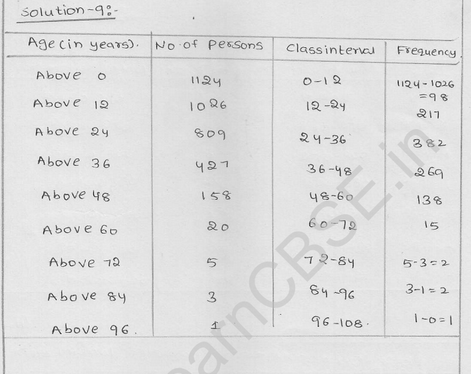 Solution-9:-
Age (in years). No. of Persons Class interval Frequency
Above 0 1124 0-12 1124-1026
=98
Above 12 1026 12-24 217
Above 24 809 24-36 382
Above 36 427 36-48 269
Above 48 158 48-60 138
Above 60 20 60-72 15
Above 72 5 72-84 5-3=2
Above 84 3 84-96 3-1=2
Above 96. 1 96-108. 1-0=1
earnCBSE.in